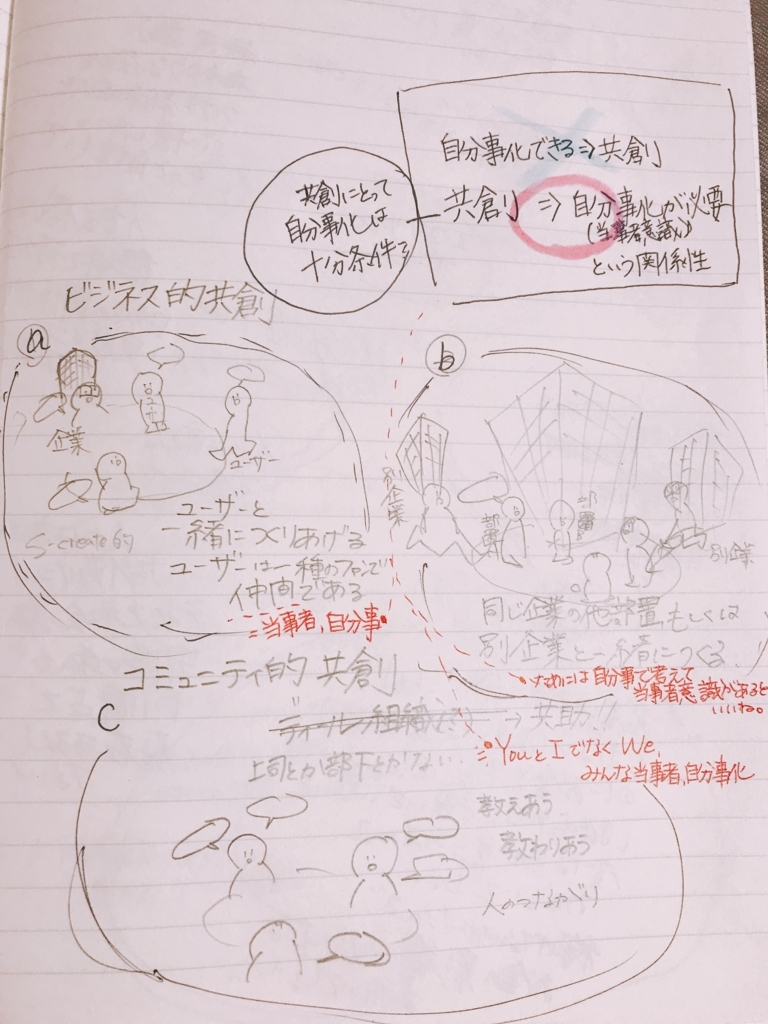 自分事化できる⇒共創
共創 ⇒ 自分事化が必要
(当事者意識)
という関係性
共創にとって
自分事化は
十分条件?
ビジネス的共創
a
企業
ユーザー
ユーザー
S-create的
ユーザーと
一緒につくりあげる
ユーザーは一種のファンで
仲間である
=当事者,自分事
b
別企業
部署A
部署B
別企業
同じ企業の他部署,もしくは
別企業と一緒につくる
ためには自分事で考えて
当事者意識があると
いいね。
コミュニティ的 共創
C
組織 → 共助!!
上司とか部下とかない
=YouとIでなくWe,
みんな当事者,自分事化
教えあう
教わりあう
人のつながり